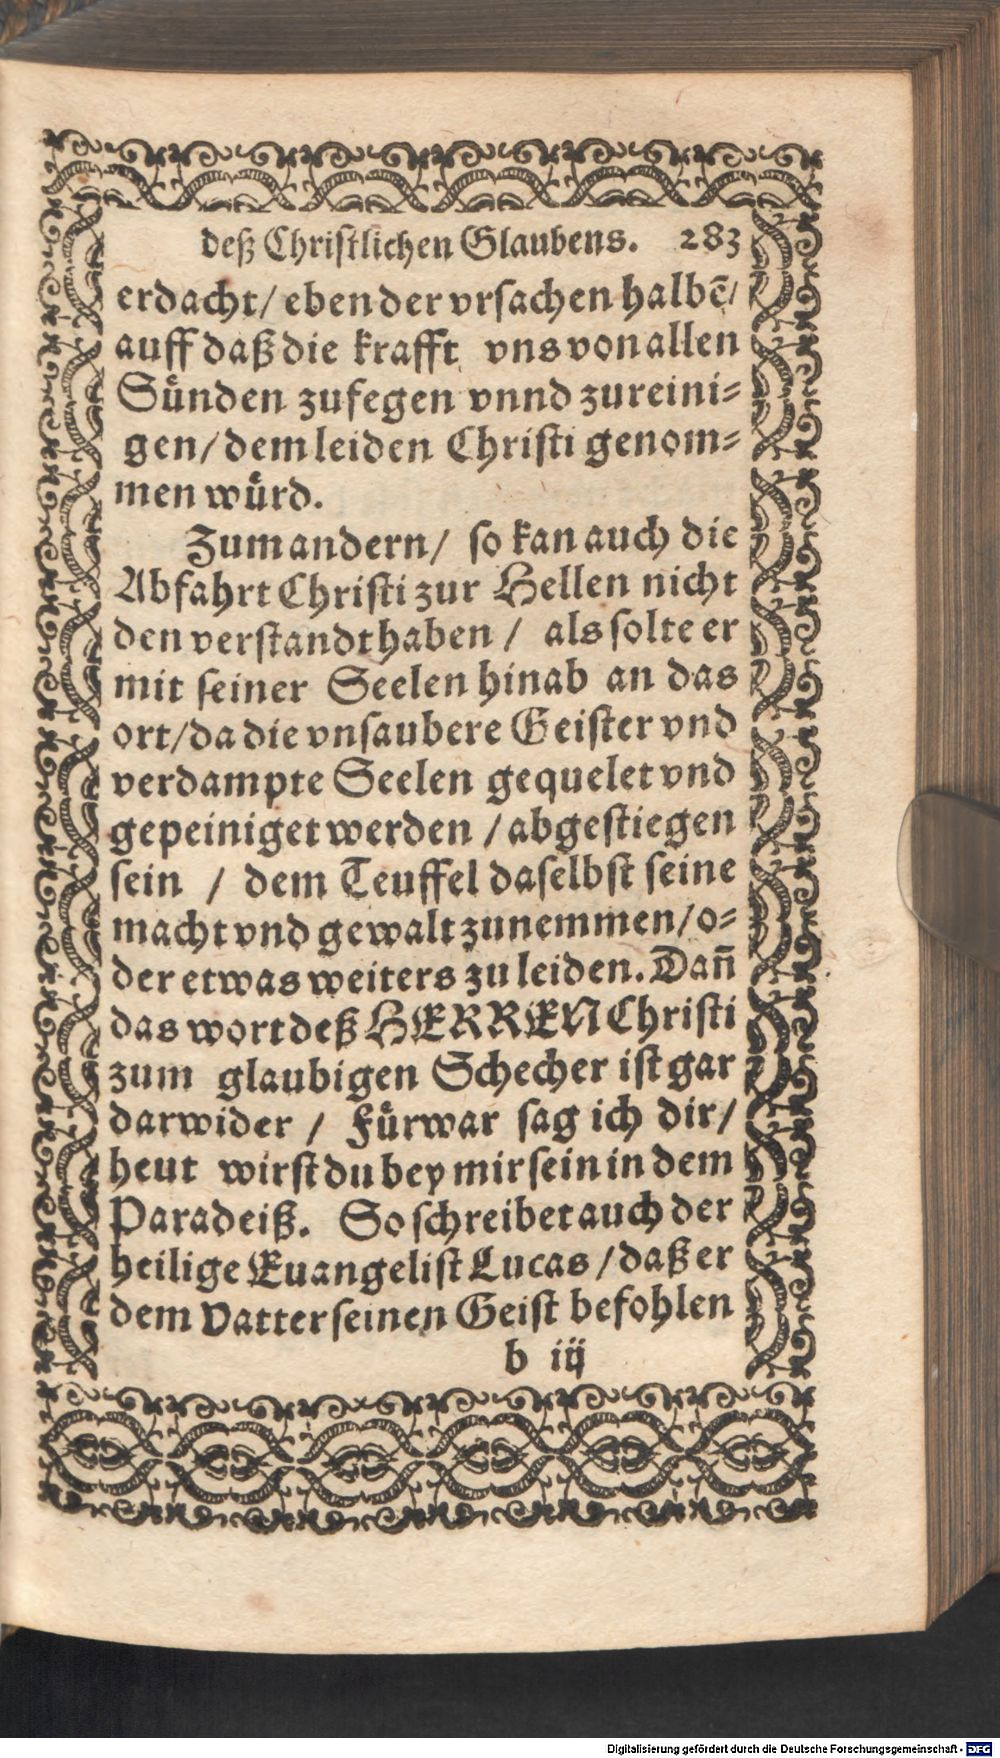 deß Christlichen Glaubens. 283
erdacht/ eben der vrsachen halbē/
auff daß die krafft vns von allen
Sünden zufegen vnnd zureini-
gen/ dem leiden Christi genom-
men würd.
Zum andern/ so kan auch die
Abfahrt Christi zur Hellen nicht
den verstandt haben / als solte er
mit seiner Seelen hinab an das
ort/ da die vnsaubere Geister vnd
verdampte Seelen gequelet vnd
gepeiniget werden / abgestiegen
sein / dem Teuffel daselbst seine
macht vnd gewalt zunemmen/ o-
der etwas weiters zu leiden. Dañ
das wort deß HERREN Christi
zum glaubigen Schecher ist gar
darwider / Fürwar sag ich dir/
heut wirst du bey mir sein in dem
Paradeiß. So schreibet auch der
heilige Euangelist Lucas / daß er
dem Vatter seinen Geist befohlen
b iij
Digitalisierung gefördert durch die Deutsche Forschungsgemeinschaft - DFG